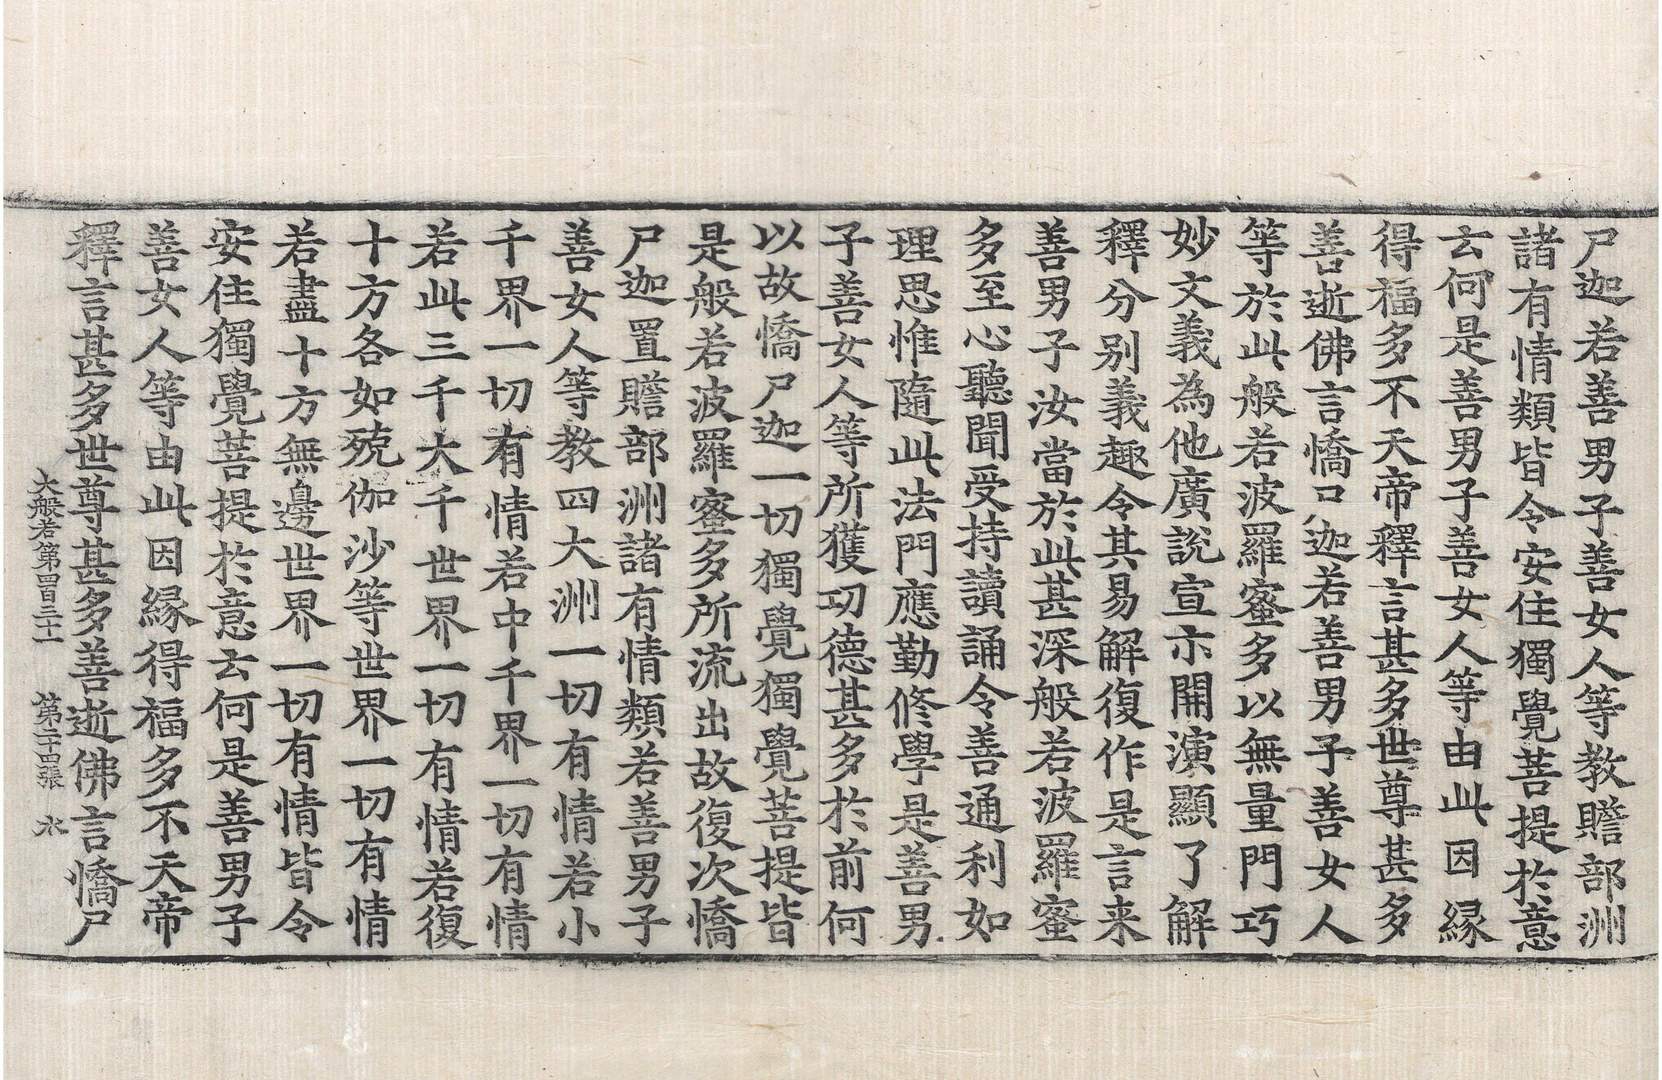 尸迦若善男子善女人等教贍部洲
諸有情類皆令安住獨覺菩提於意
云何是善男子善女人等由此因緣
得福多不天帝釋言甚多世尊甚多
善逝佛言憍尸迦若善男子善女人
等於此般若波羅蜜多以無量門巧
妙文義為他廣說宣示開演顯了解
釋分別義趣令其易解復作是言来
善男子汝當於此甚深般若波羅蜜
多至心聽聞受持讀誦令善通利如
理思惟隨此法門應勤修學是善男
子善女人等所獲功德甚多於前何
以故憍尸迦一切獨覺獨覺菩提皆
是般若波羅蜜多所流出故復次憍
尸迦置贍部洲諸有情類若善男子
善女人等教四大洲一切有情若小
千界一切有情若中千界一切有情
若此三千大千世界一切有情若復
十方各如殑伽沙等世界一切有情
若盡十方無邊世界一切有情皆令
安住獨覺菩提於意云何是善男子
善女人等由此因緣得福多不天帝
釋言甚多世尊甚多善逝佛言憍尸
大般若第四百三十一 第二十四張